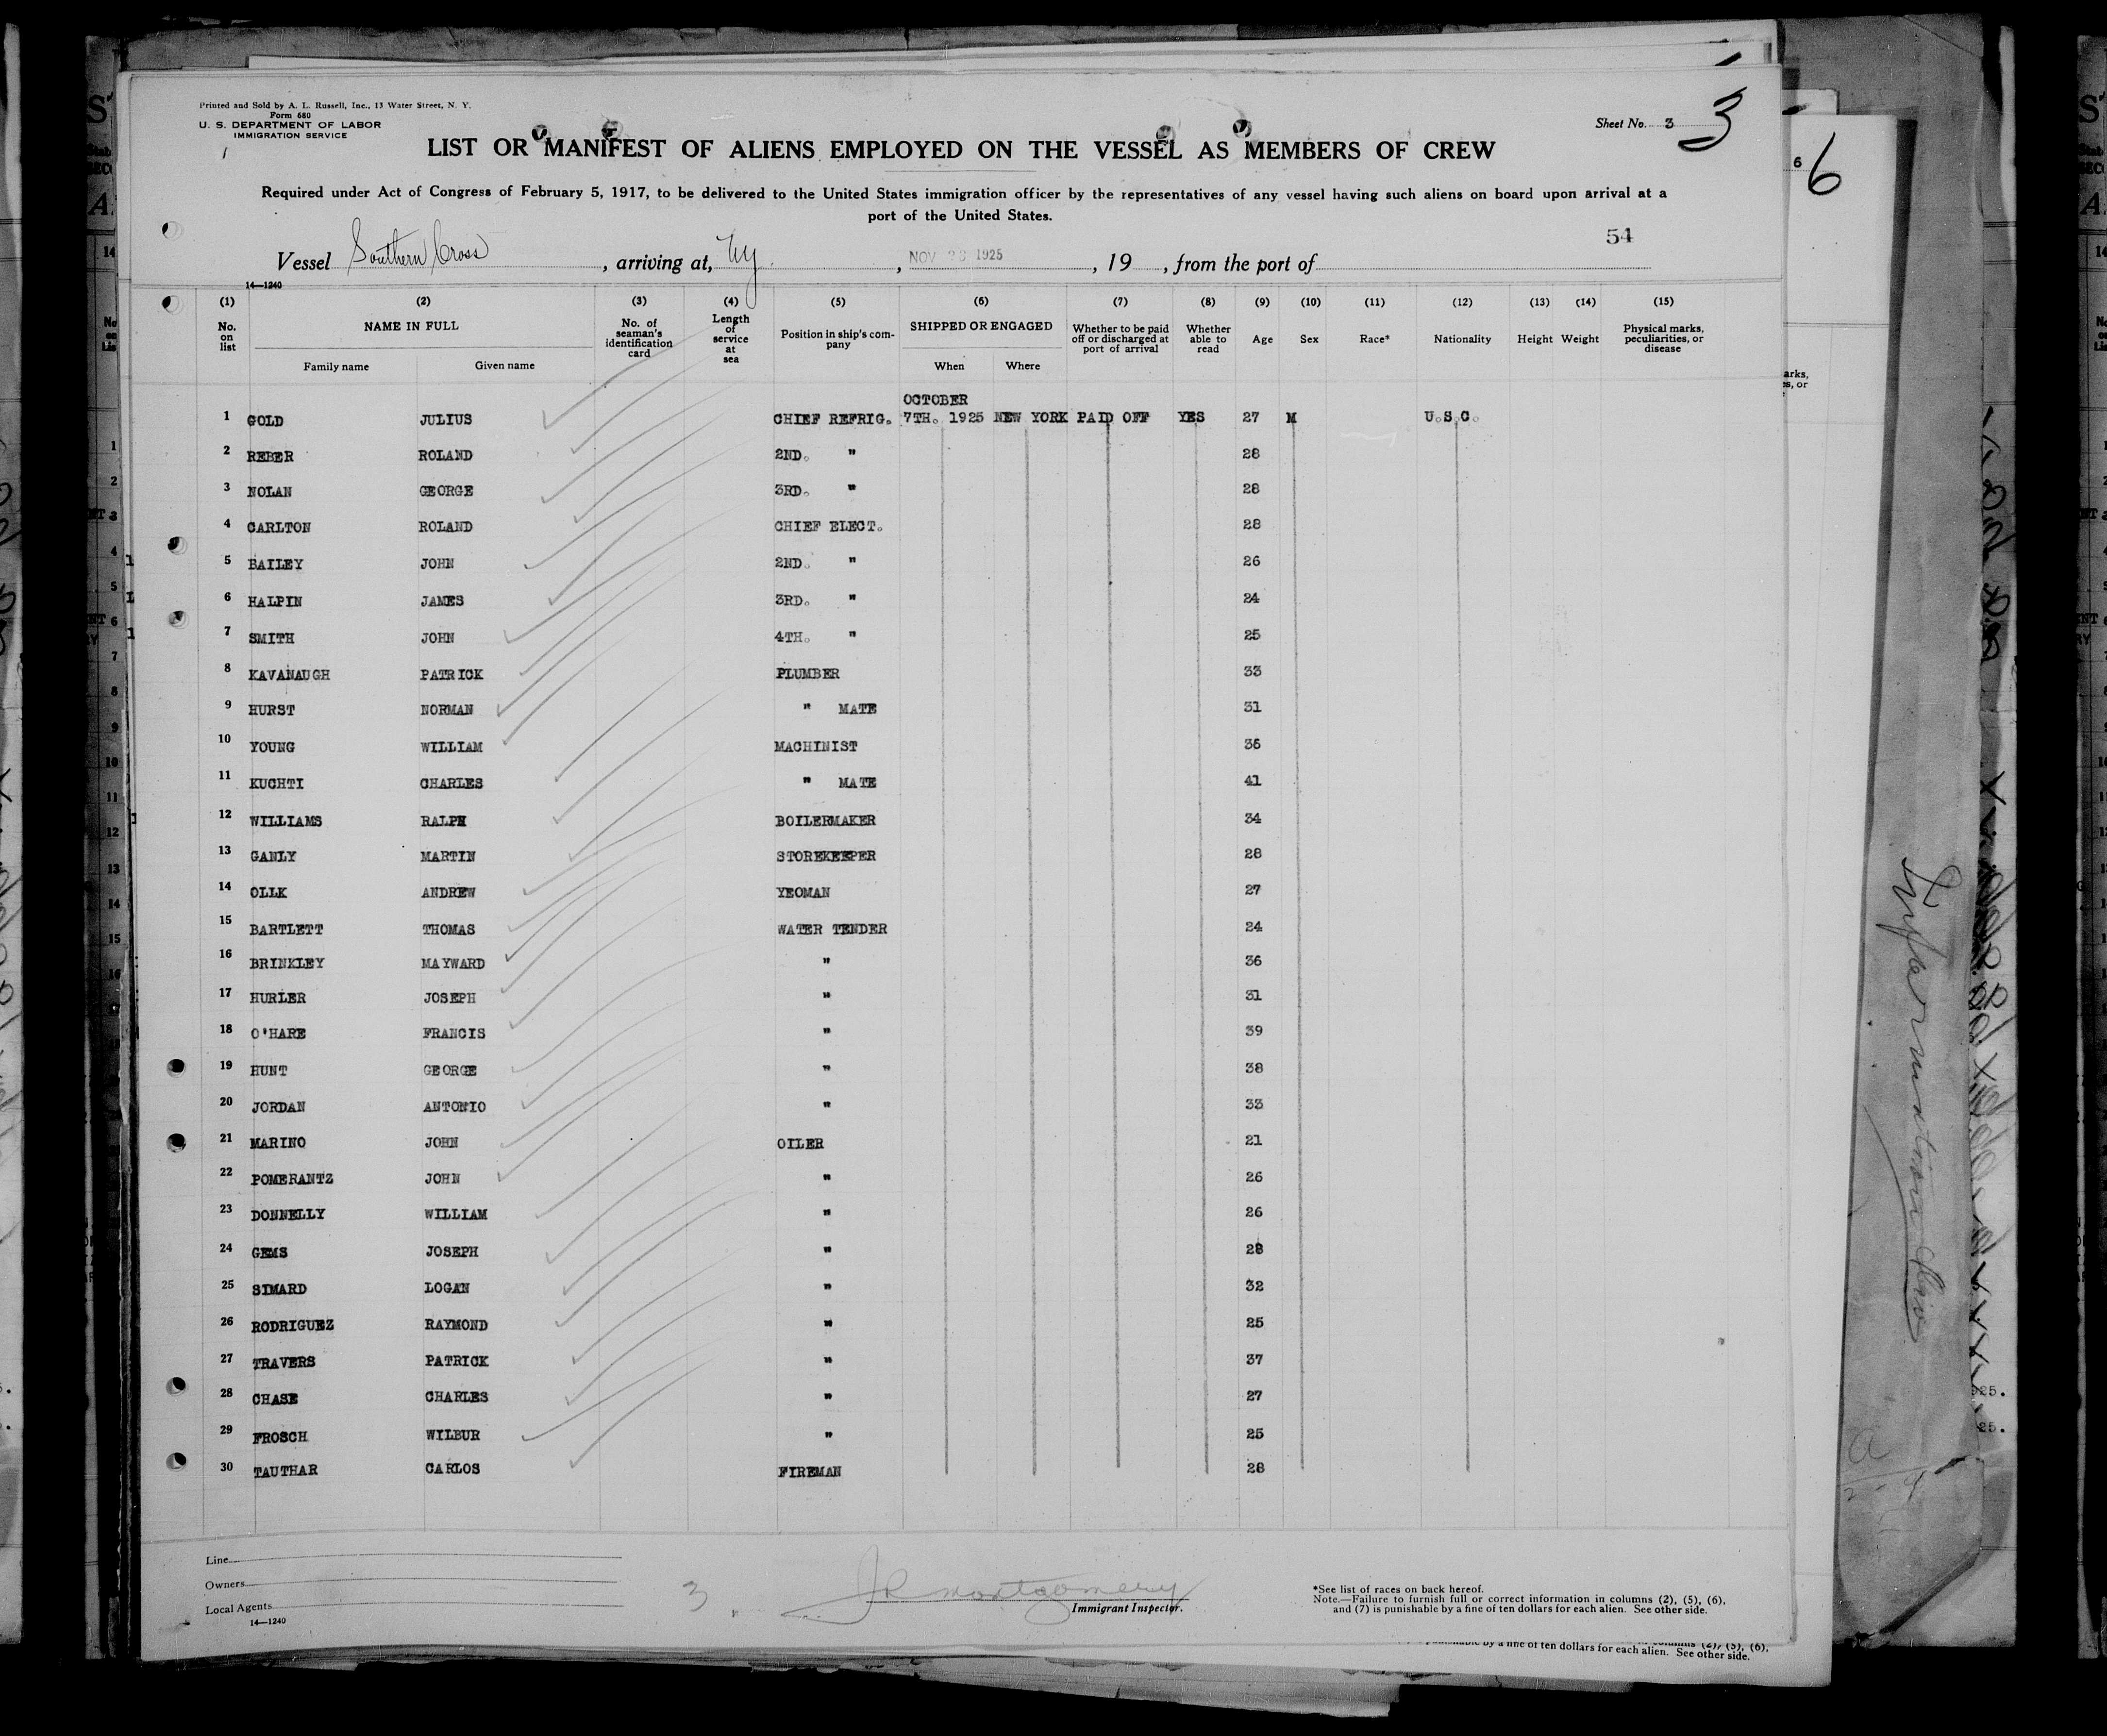 Printed and Sold by A. L. Russell, Inc., 13 Water Street, N. Y.
Form 680
U. S. DEPARTMENT OF LABOR
IMMIGRATION SERVICE
Sheet No. 3
3
6
6
LIST OR MANIFEST OF ALIENS EMPLOYED ON THE VESSEL AS MEMBERS OF CREW
Required under Act of Congress of February 5, 1917, to be delivered to the United States immigration officer by the representatives of any vessel having such aliens on board upon arrival at a
port of the United States.
54
Vessel Southern Cross, arriving at, NY, NOV 23 1925, 19, from the port of
14—1240
(1) (2) (3) (4) (5) (6) (7) (8) (9) (10) (11) (12) (13) (14) (15)
No. on list NAME IN FULL No. of seaman's identification card Length of service at sea Position in ship's company SHIPPED OR ENGAGED Whether to be paid off or discharged at port of arrival Whether able to read Age Sex Race* Nationality Height Weight Physical marks, peculiarities, or disease
Family name Given name When Where
OCTOBER
1 GOLD JULIUS CHIEF REFRIG. 7TH. 1925 NEW YORK PAID OFF YES 27 M U.S.C.
2 REBER ROLAND 2ND. " 28
3 NOLAN GEORGE 3RD. " 28
4 CARLTON ROLAND CHIEF ELECT. 28
5 BAILEY JOHN 2ND. " 26
6 HALPIN JAMES 3RD. " 24
7 SMITH JOHN 4TH. " 25
8 KAVANAUGH PATRICK PLUMBER 33
9 HURST NORMAN " MATE 31
10 YOUNG WILLIAM MACHINIST 36
11 KUCHTI CHARLES " MATE 41
12 WILLIAMS RALPH BOILERMAKER 34
13 GANLY MARTIN STOREKEEPER 28
14 OLLK ANDREW YEOMAN 27
15 BARTLETT THOMAS WATER TENDER 24
16 BRINKLEY MAYWARD " 36
17 HURLER JOSEPH " 31
18 O'HARE FRANCIS " 39
19 HUNT GEORGE " 38
20 JORDAN ANTONIO " 33
21 MARINO JOHN OILER 21
22 POMERANTZ JOHN " 26
23 DONNELLY WILLIAM " 26
24 GEMS JOSEPH " 28
25 SIMARD LOGAN " 32
26 RODRIGUEZ RAYMOND " 25
27 TRAVERS PATRICK " 37
28 CHASE CHARLES " 27
29 FROSCH WILBUR " 25
30 TAUTHAR CARLOS FIREMAN 28
Line
Owners
Local Agents
14—1240
3
J R Montgomery
Immigrant Inspector.
*See list of races on back hereof.
Note.—Failure to furnish full or correct information in columns (2), (5), (6),
and (7) is punishable by a fine of ten dollars for each alien. See other side.
by a fine of ten dollars for each alien. See other side.